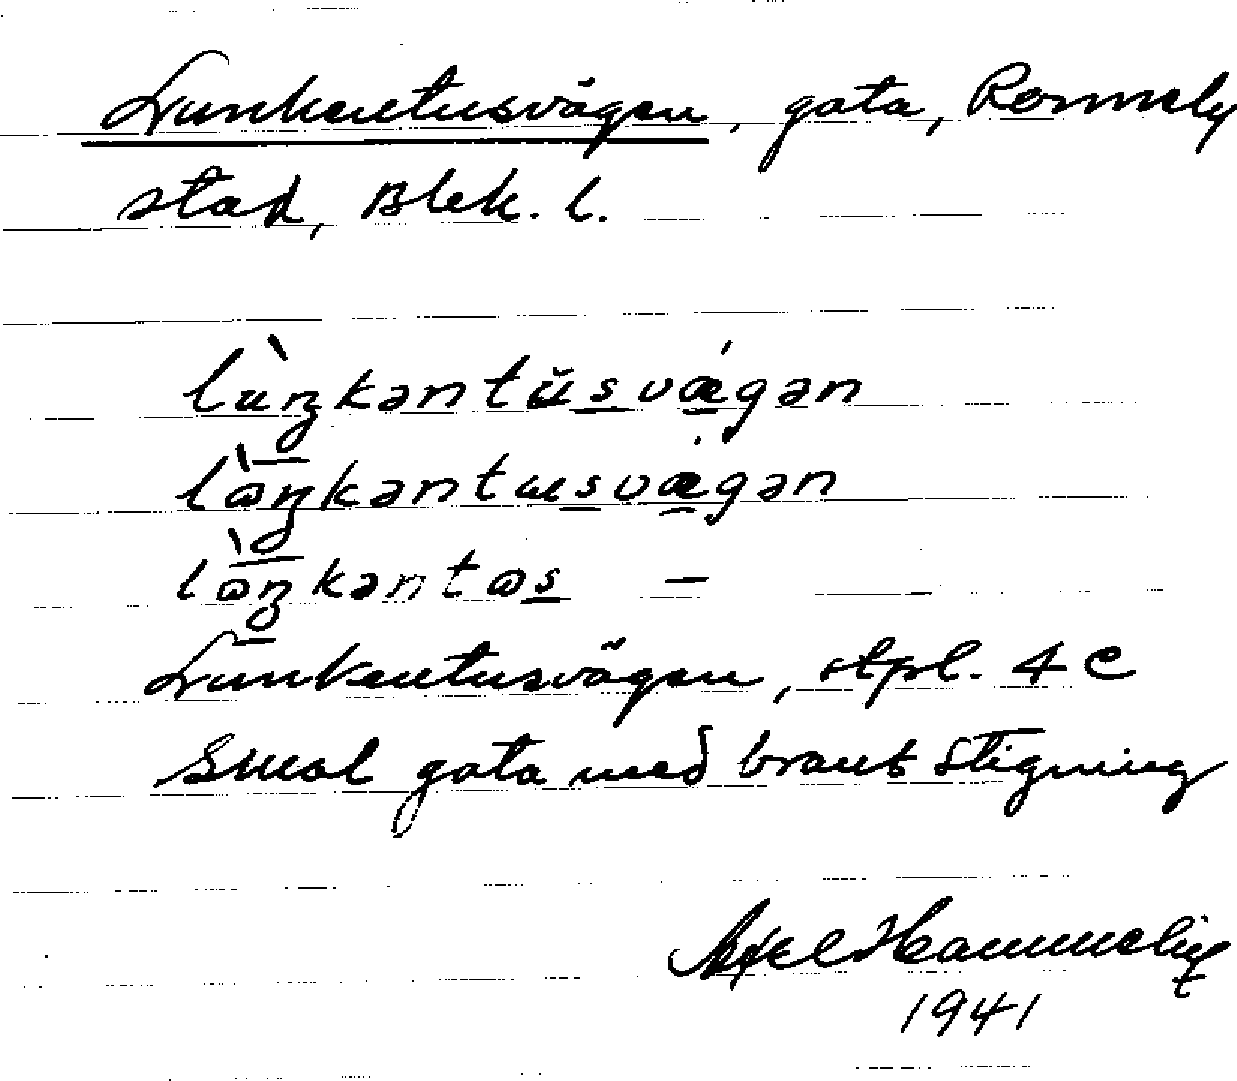 Lunkentusvägen, gata, Ronneby
stad, Blek. l.
lùŋkəntŭsvǽgən
lòŋkəntusvægən
lòŋkəntɷs —
Lunkentusvägen, stpl. 4 C
Smal gata med brant stigning
Axel Hammelin
1941